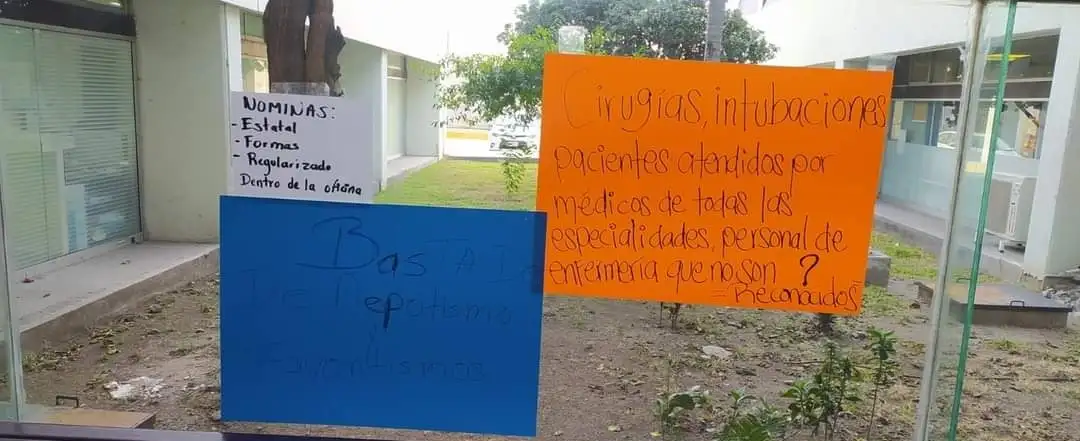 NOMINAS:
- Estatal
- Formas
- Regularizado
Dentro de la oficina
Basta De
De Nepotismo
y
Favoritismos
Cirugías, intubaciones
pacientes atendidos por
médicos de todas las
especialidades, personal de
enfermería que no son ?
= Reconocidos